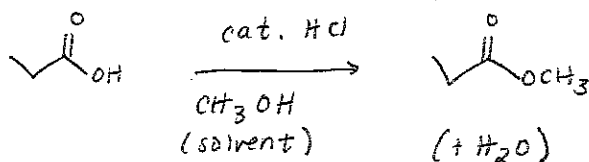 O
OH
cat. HCl
CH3OH
(solvent)
O
OCH3
(+ H2O)